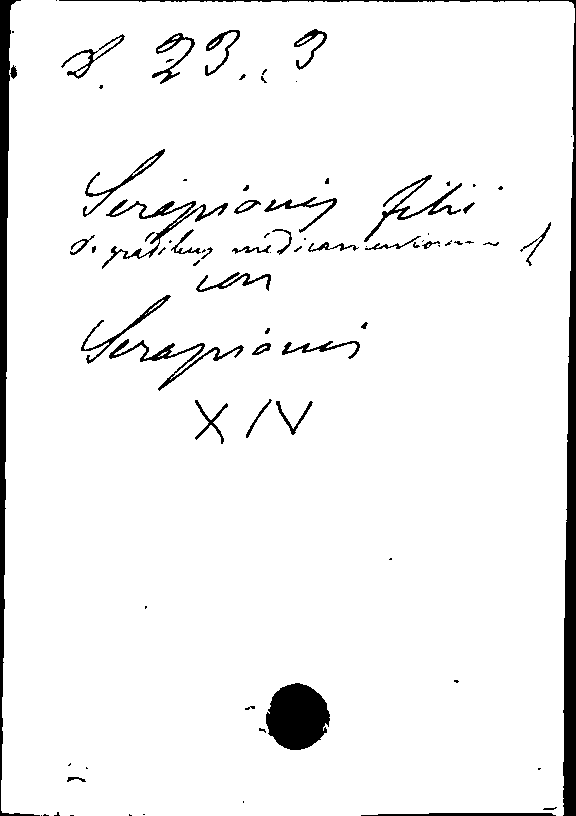 S. 23. 3
Serapionis filii
d. gradibus medicamentorum
Serapionis
XIV